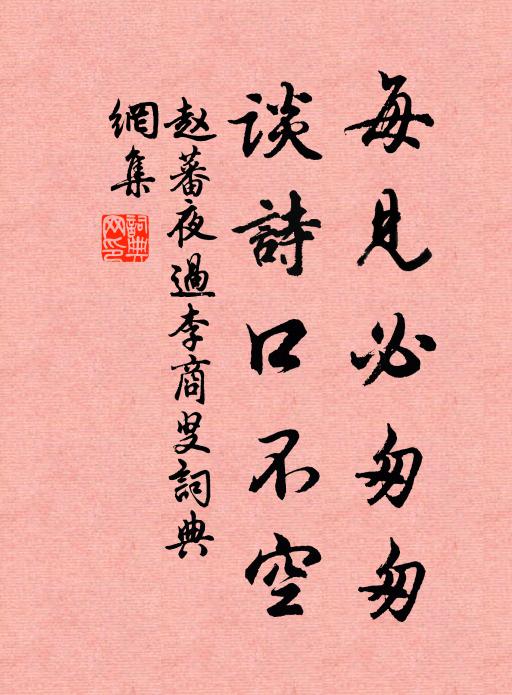 每見必匆匆
談詩口不空
赵蕃夜過李商叟詞典
網集
詞典
网印